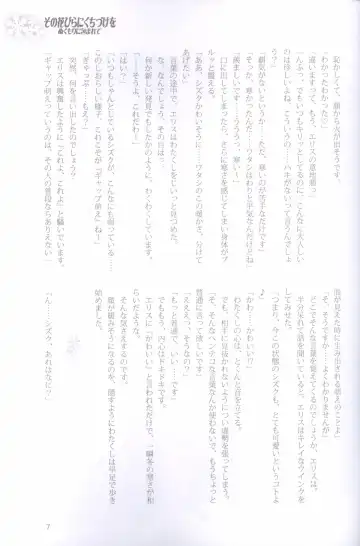 その花びらにくちづけを
ぬくもりに包まれて
恥かしくて、顔から火が出そうです。
「わかったかわかった？」
「違いますって、もう、エリスの意地悪っ」
「んふっ。でもいつもキリッとしてるのに、こんなに大人しい
シズクって珍しいよね。こういうの…ハキがないって言うんでしょ
「覇気がないというか……ただ、寒いのが苦手なだけです」
「そっか、寒かったんだ…ワタシはわりと平気なんだよね」
「うらやましいです……ううううっ、寒いっ」
口に出してしまうと、さらに寒さを感じてしまい身体がブ
ルルと震える。
「ああ、シズクかわいそうに……ワタシのこの暖かさ、分けて
あげたい」
言葉の途中で、エリスはわたくしをじっと見つめた。
な、なんでしょう、その目は……。
何か新しい発見でもしたかのように、わくわくしています。
「……そうよ、これだわ！」
「はい？」
「いつもしゃんとしているシズクが、こんなにも弱っている……
このしおらしい様子、これこそが『ギャップ萌え』ね！」
「ぎゃっぷ……もえ？」
突然、何を言い出すのでしょう？
エリスは興奮したように「これよ、これよ」と騒いでいます。
「ギャップ萌えっていうのは、その人の普段ならありえない一
面が見えた時に生み出される萌えのことよ」
「そ、そうですか……よくわかりませんが」
どこでそんな言葉を覚えてくるのでしょうか、エリスは。
半分呆れて話を聞いていると、エリスはキレイなウインクを
してみせた。
「つまり、今この状態のシズクも、とても可愛いというコトよ
♪」
「か……かわいいっ！？」
わたくしの心は、どくんと音を立てる。
でも、相手には悟かれないようについ虚勢を張ってしまう。
「そ、そんなヘンテコな言葉なんか使わないで、もうちょっと
普通に言って欲しいです」
「えええっ、そうだな」
「もっと普通で、いい……です」
でももう、内心はドキドキです。
エリスに「かわいい」と言われただけで、一瞬冬の寒さが和
らいだような、
そんな気さえするのです。
頬が緩みそうになるのを、隠すようにわたくしは早足で歩き
始めました。
「ん……シズク、あれはなに？」
7